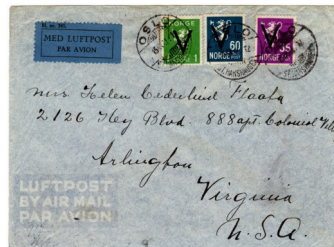 MED LUFTPOST
PAR AVION
OSLO
NORGE
V
1
NORGE
V
60
NORGE
V
Mrs Helen Cederlind Flaata
2126 Key Blvd 888 apt. Colonial
Arlington
Virginia
U.S.A.
LUFTPOST
BY AIR MAIL
PAR AVION